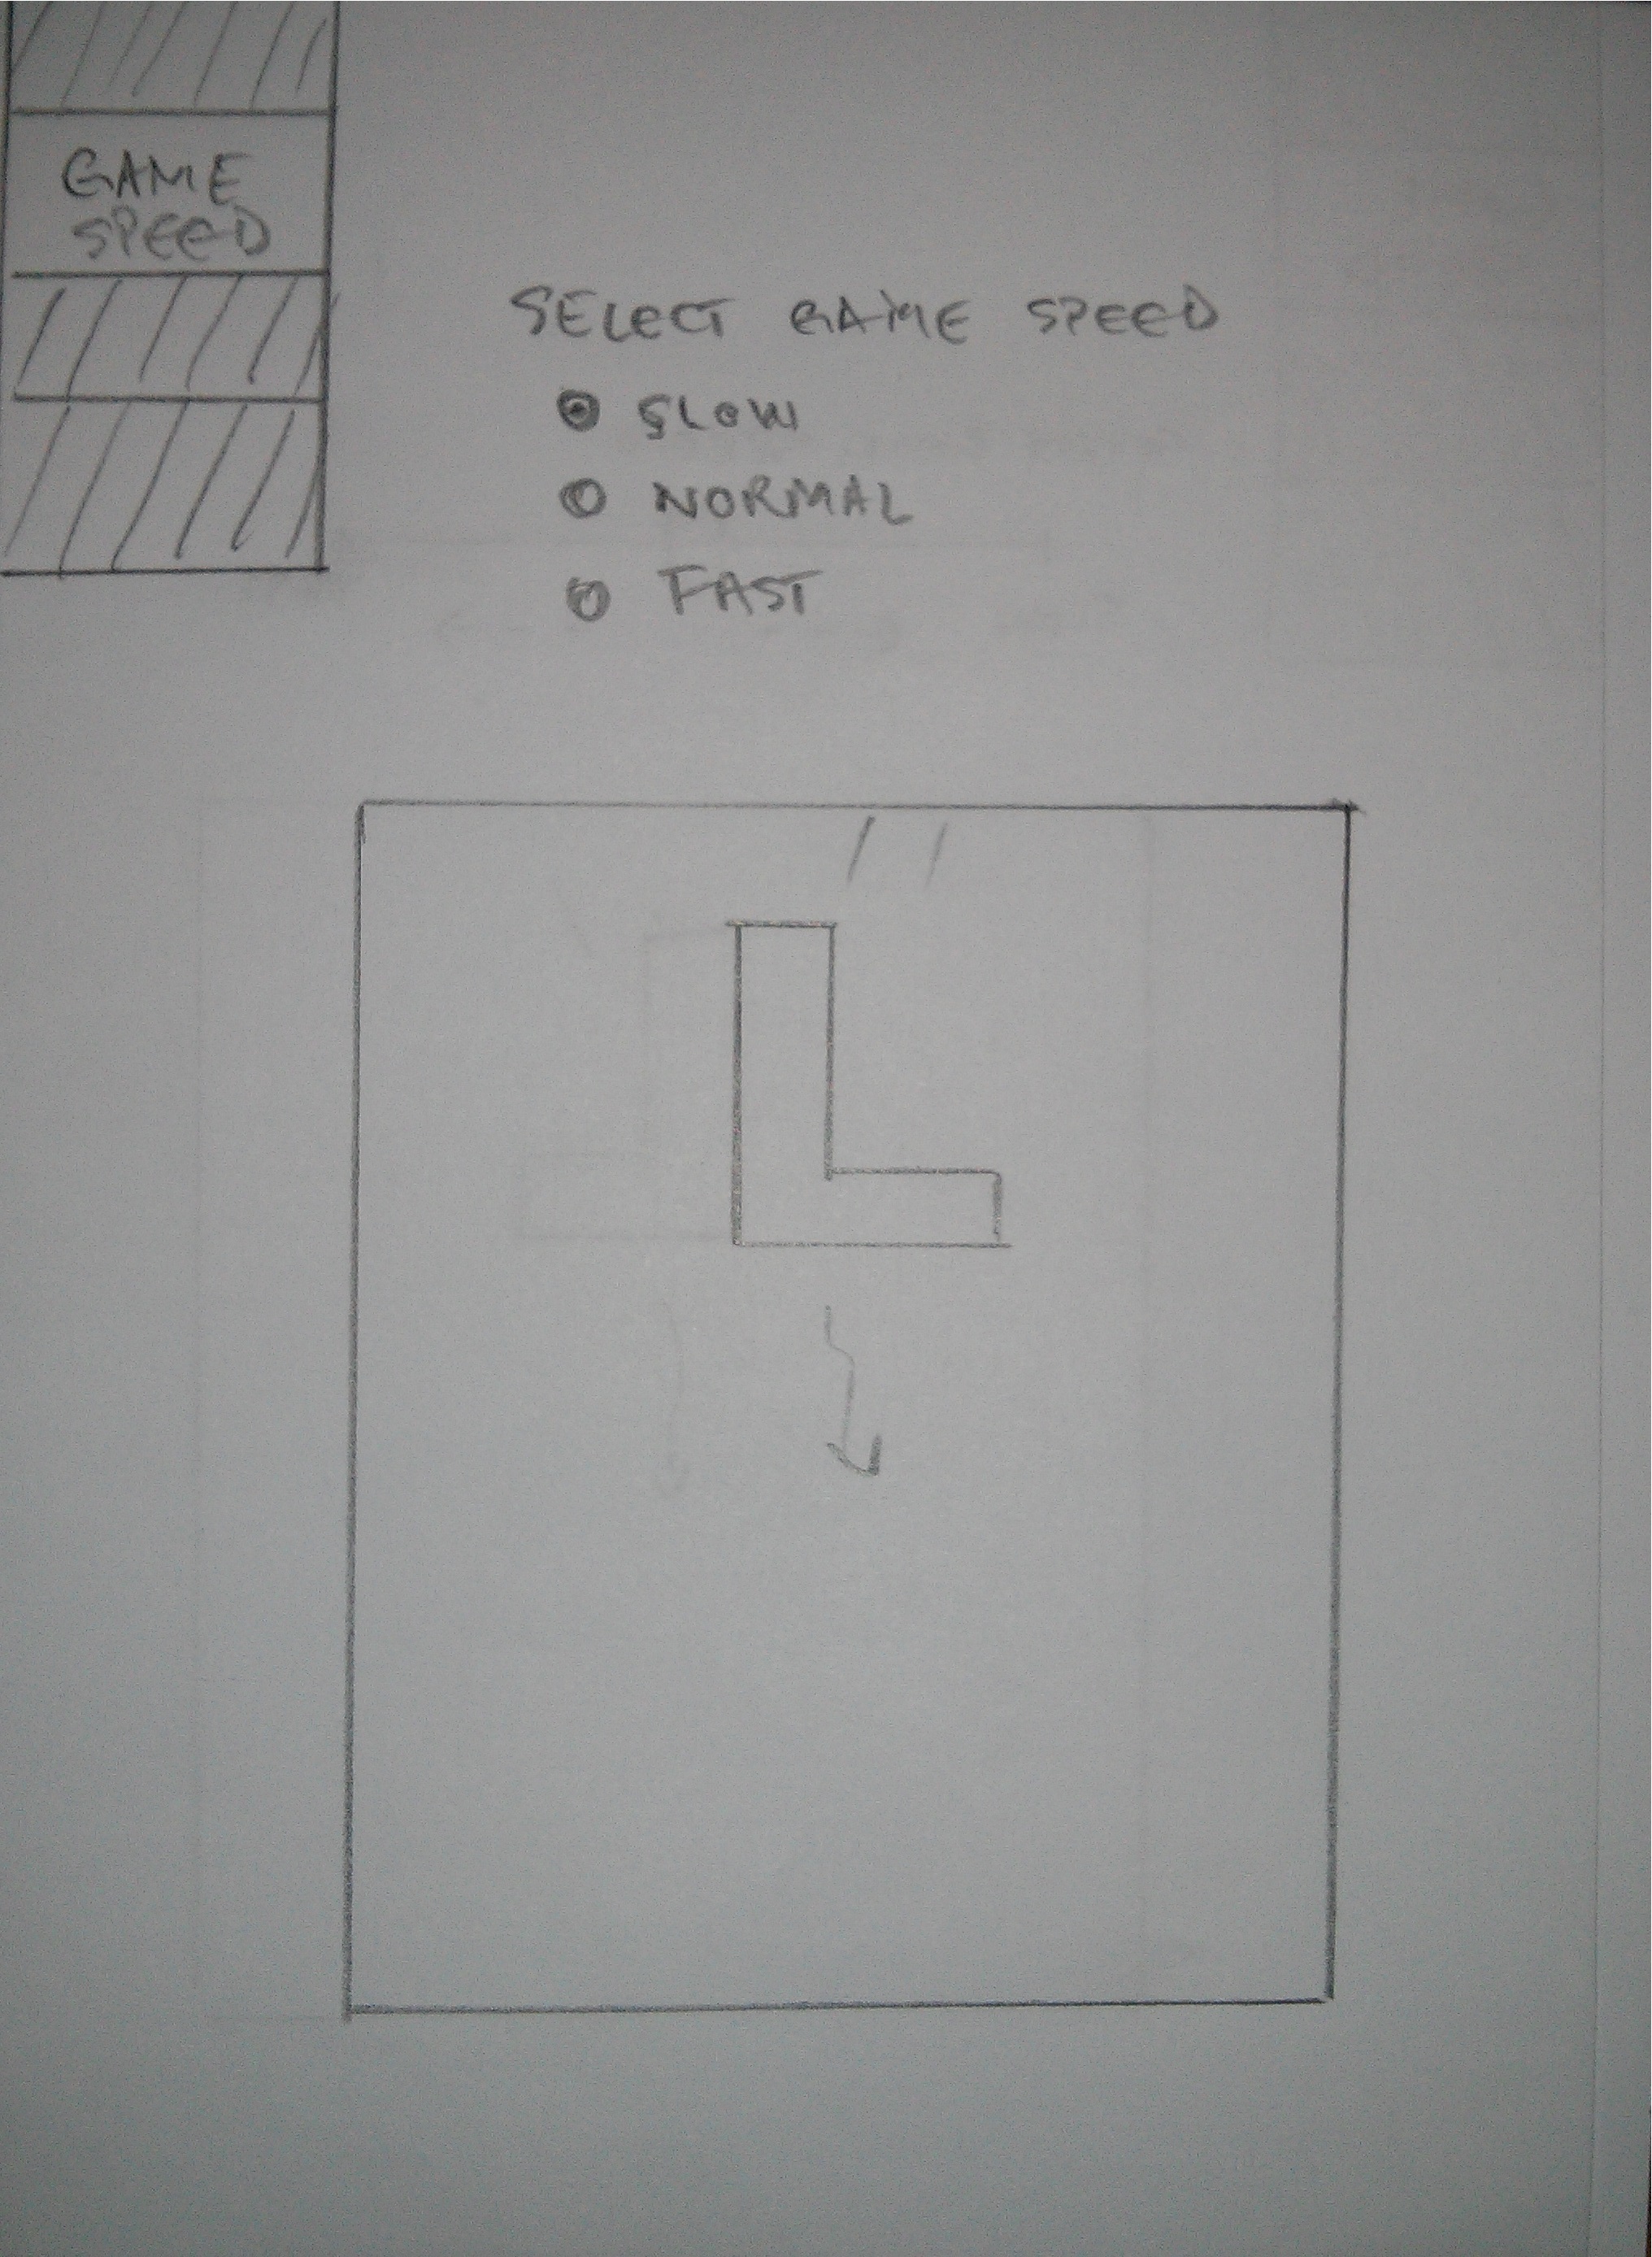 GAME
SPEED
SELECT GAME SPEED
SLOW
NORMAL
FAST